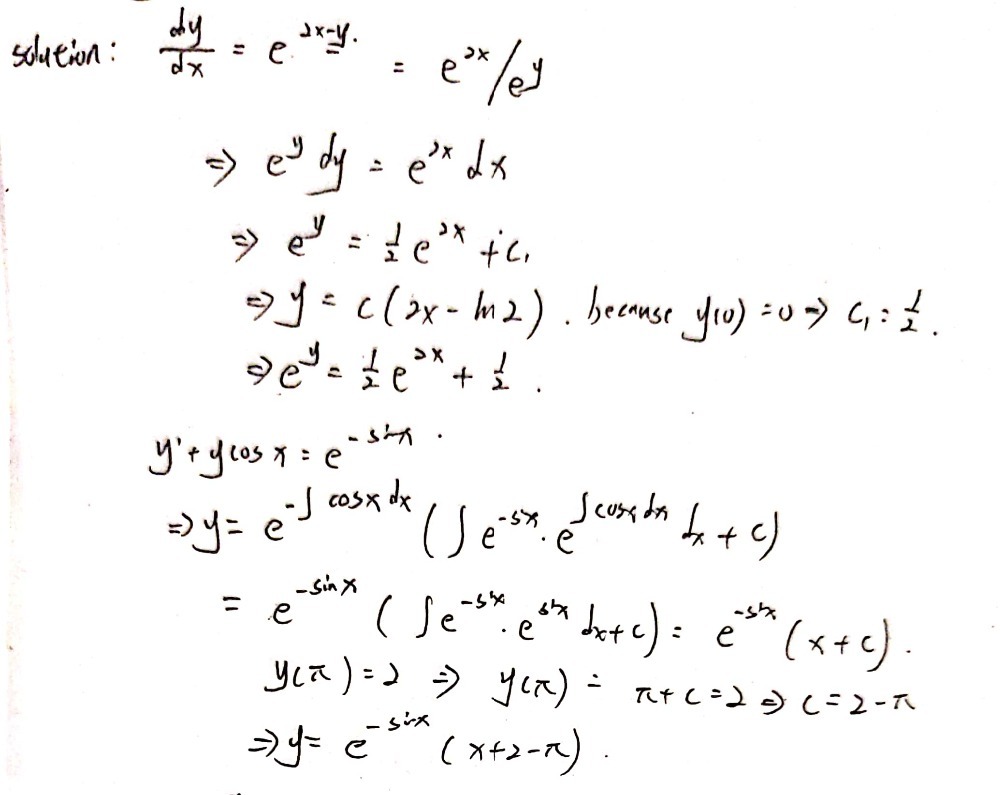 solution: dy/dx = e^{2x-y}. = e^{2x}/e^y
⇒ e^y dy = e^{2x} dx
⇒ e^y = 1/2 e^{2x} + c₁
⇒ y = c(2x - ln2). because y(0) = 0 ⇒ C₁ = 1/2.
⇒ e^y = 1/2 e^{2x} + 1/2.
y' + y cos x = e^{-sinx}.
⇒ y = e^{-∫cosx dx} (∫ e^{-sx}. e^{∫cosx dx} dx + c)
= e^{-sinx} (∫ e^{-sinx}. e^{sinx} dx + c) = e^{-sinx} (x + c).
y(π) = 2 ⇒ y(π) = π + c = 2 ⇒ c = 2 - π
⇒ y = e^{-sinx} (x + 2 - π).